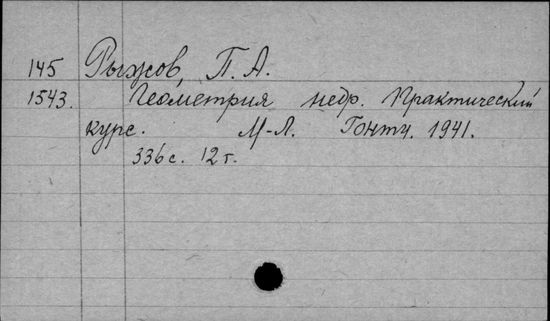 145 Рыжов, П. А.
1543. Геометрия недр. Практический
курс. М-Л. Гонти. 1941.
336 с. 12 г.